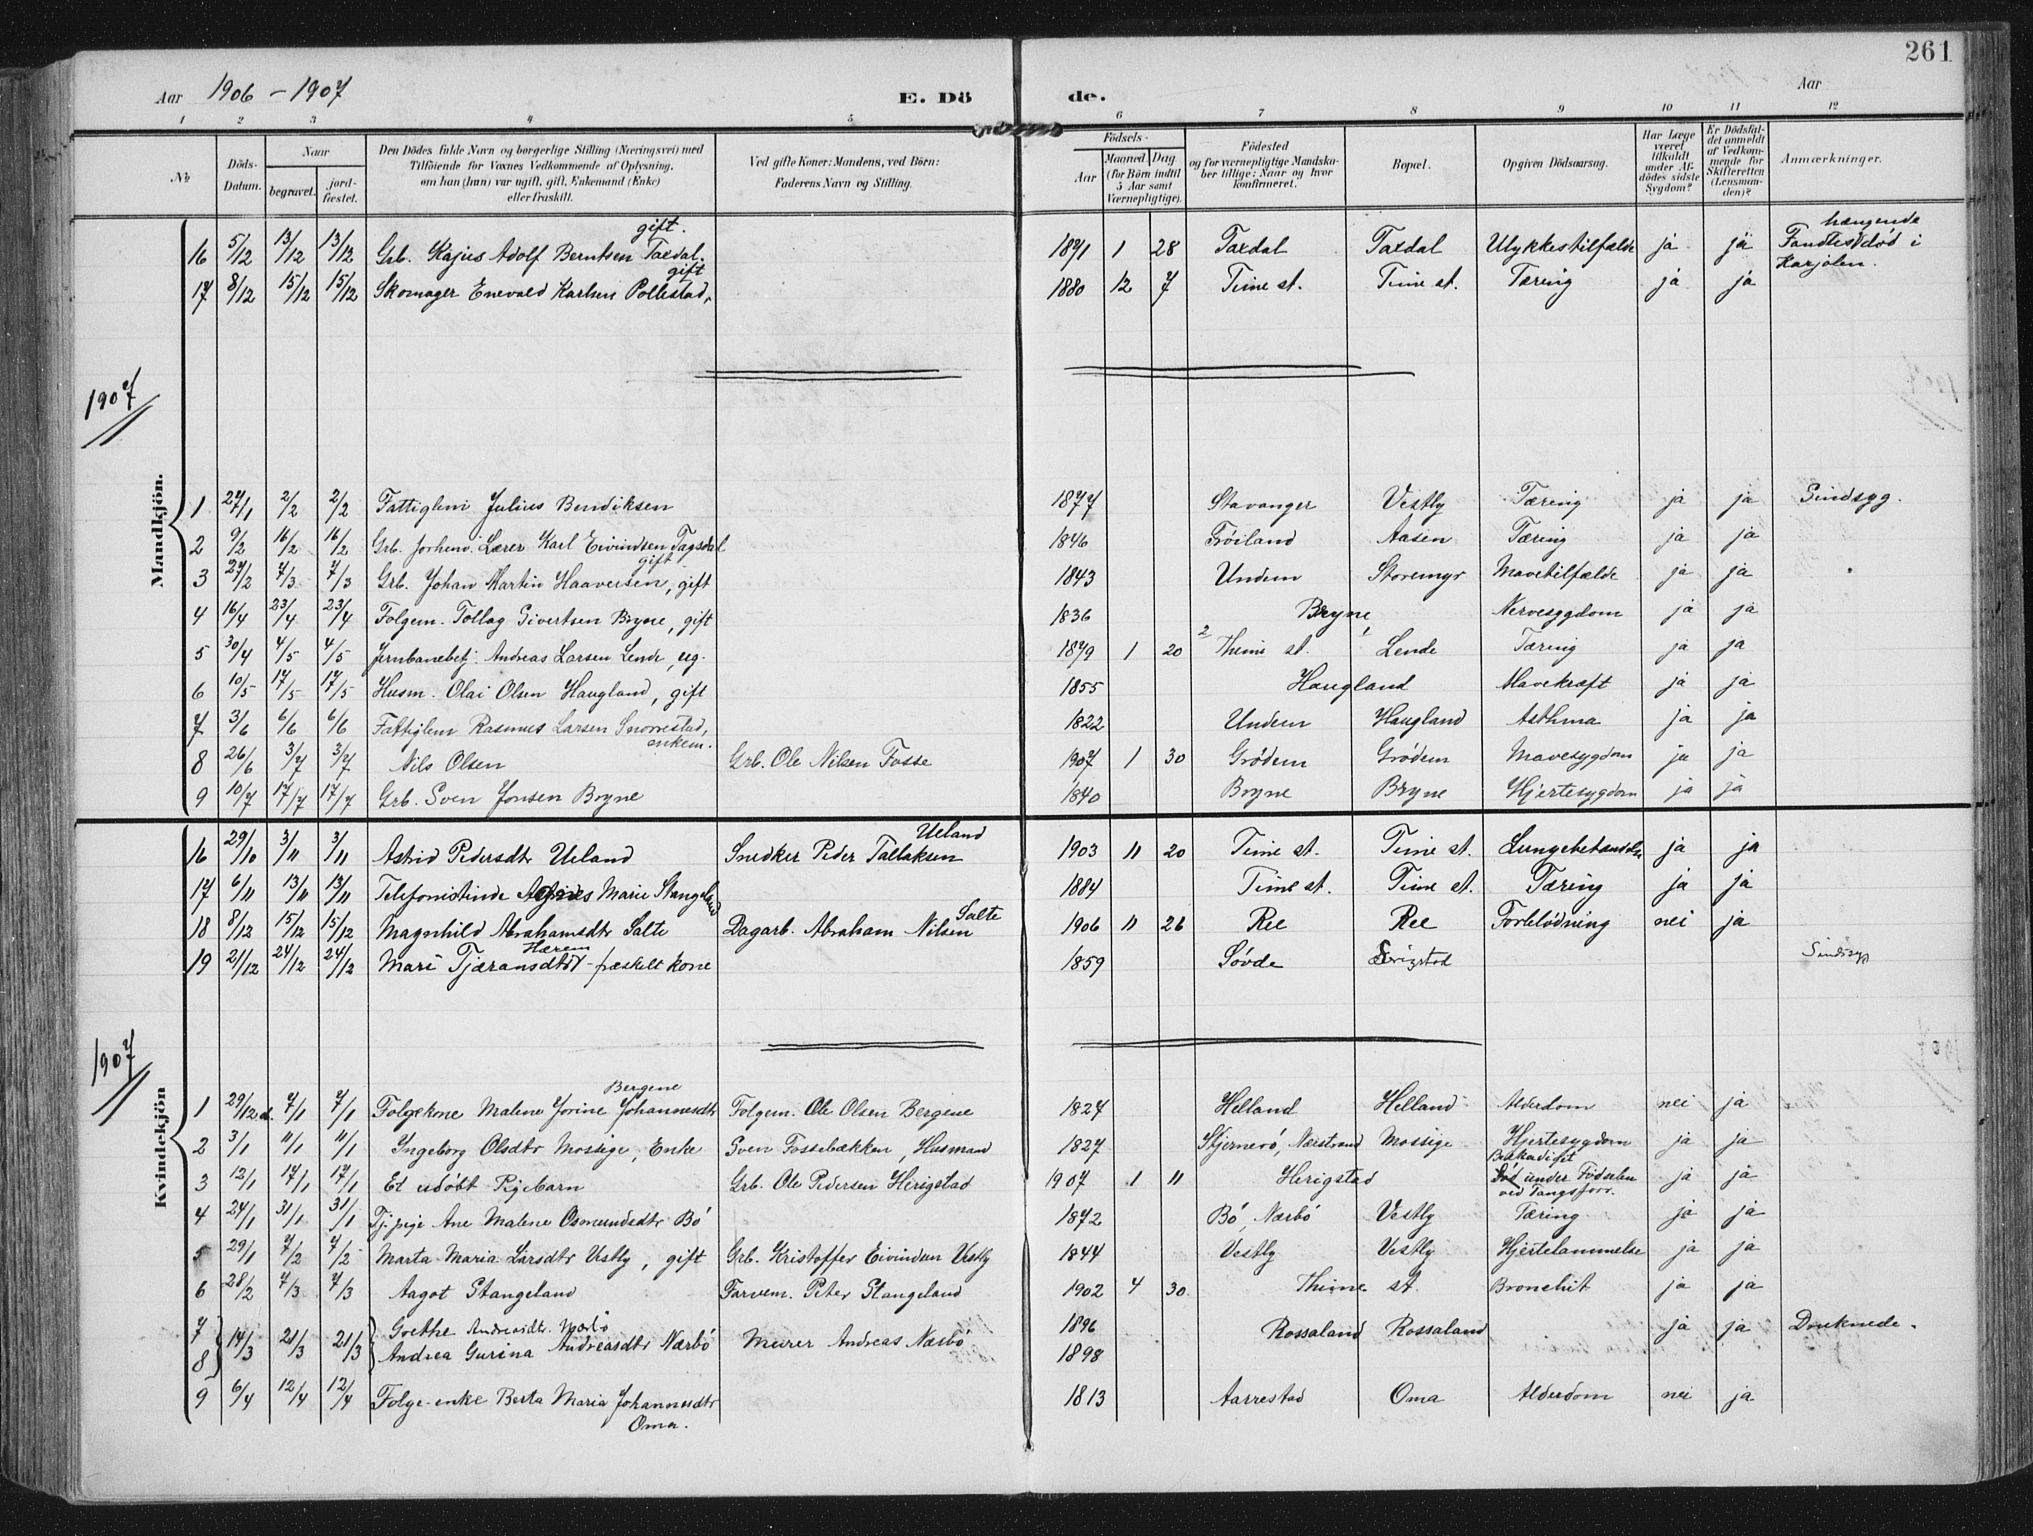 261
Aar 1906 - 1907 E. Dö de. Aar
1 2 3 4 5 6 7 8 9 10 11 12
No. Döds-Datum. Naar begravet. jord-fæstet. Den Dödes fulde Navn og borgerlige Stilling (Næringsvei) med Tilföiende for Voxnes Vedkommende af Oplysning, om han (hun) var ugift, gift, Enkemand (Enke) eller fraskilt. Ved gifte Koner: Mandens, ved Börn: Faderens Navn og Stilling. Födsels- Aar Maaned Dag (for Börn indtil 5 Aar samt Værnepligtige). Födested og for værnepligtige Mandskaber tillige: Naar og hvor konfirmeret. Bopæl. Opgiven Dödsaarsag. Har Læge været tilkaldt under Afdödes sidste Sygdom? Er Dödsfaldet anmeldt af Vedkommende for Skifteretten (Lensmanden)? Anmærkninger.
gift. hængende
16 5/12 13/12 13/12 Grb. Kajus Adolf Berntsen Taxdal. 1871 1 28 Taxdal Taxdal Ulykkestilfælde ja ja Fandtes död i
gift Karjolen.
17 8/12 15/12 15/12 Skomager Enevald Karlsen Pollestad, 1880 12 7 Time st. Time st. Tæring ja ja
1907
Mandkjön.
1 27/1 2/2 2/2 Fattiglem Julius Bendiksen 1877 Stavanger Vestly Tæring ja ja Sindsyg.
2 9/2 16/2 16/2 Grb. forhenv. Lærer Karl Eivindsen Tagsdal 1846 Fröiland Aasen Tæring ja ja
gift
3 27/2 7/3 7/3 Grb. Johan Martin Haaversen, gift 1843 Undem Storemyr Mavetilfælde ja ja
4 16/4 23/4 23/4 Folgem. Tollag Sivertsen Bryne, gift 1836 Bryne, Nervesygdom ja ja
5 30/4 4/5 4/5 Jernbanebetj. Andreas Larsen Lende, ug. 1879 1 20 Thime st. Lende Tæring ja ja
6 10/5 17/5 17/5 Husm. Olai Olsen Haugland, gift 1855 Haugland Mavekræft ja ja
7 3/6 6/6 6/6 Fattiglem Rasmus Larsen Snorrestad, 1822 Undem Haugland Asthma ja ja
enkem.
8 26/6 3/7 3/7 Nils Olsen Grb. Ole Nilsen Fosse 1907 1 30 Grödem Grödem Mavesygdom ja ja
9 10/7 17/7 17/7 Grb. Sven Jonsen Bryne 1840 Bryne Bryne Hjertesygdom ja ja
Ueland
16 29/10 3/11 3/11 Astrid Pedersdtr Ueland Snedker Peder Tallaksen 1903 11 20 Time st. Time st. Lungebetændelse ja ja
17 6/11 13/11 13/11 Telefonistinde Agnes Marie Stangeland 1884 Time st. Time st. Tæring ja ja
Salte
18 8/12 15/12 15/12 Magnhild Abrahamsdtr Salte Dagarb. Abraham Nilsen 1906 11 26 Ree Ree Forblödning nei ja
Hærem
19 21/12 24/12 24/12 Mari Tjæransdtr fraskilt kone 1859 Sövde Serigstad Sindssyg
1907
Kvindekjön
Bergene
1 29/12 d. 7/1 7/1 Folgekone Malene Jorine Johannesdtr Folgem. Ole Olsen Bergene 1827 Helland Helland Alderdom nei ja
2 3/1 11/1 11/1 Ingeborg Olsdtr Mossige, Enke Sven Fossebækken, Husmand 1827 Stjernerö, Nærstrand Mossige Hjertesygdom ja ja
3 12/1 17/1 17/1 Et udöbt Pigebarn Grb. Ole Pedersen Herigstad 1907 1 11 Herigstad Död under Födselen ja ja
ved Tangsforr.
4 24/1 31/1 31/1 Tj.pige Ane Malene Osmundsdtr Bö 1872 Bö, Nærbö Vestly Tæring ja ja
5 29/1 7/2 7/2 Marta Maria Larsdtr Vestly, gift Grb. Kristoffer Eivindsen Vestly 1844 Vestly Vestly Hjertelammelse ja ja
6 28/2 7/3 7/3 Aagot Stangeland Farvem. Peter Stangeland 1902 4 30 Thime st. Bronchit ja ja
7 Grethe Andreasdtr. Nærbö 1896
8 14/3 21/3 21/3 Andrea Gurina Andreasdtr Nærbö Murer Andreas Nærbö 1898 Rossaland Rossaland ja ja Druknede.
9 6/4 12/4 12/4 Folge-enke Berta Maria Johannesdtr 1813 Aarrestad Oma Alderdom nei ja
Oma.